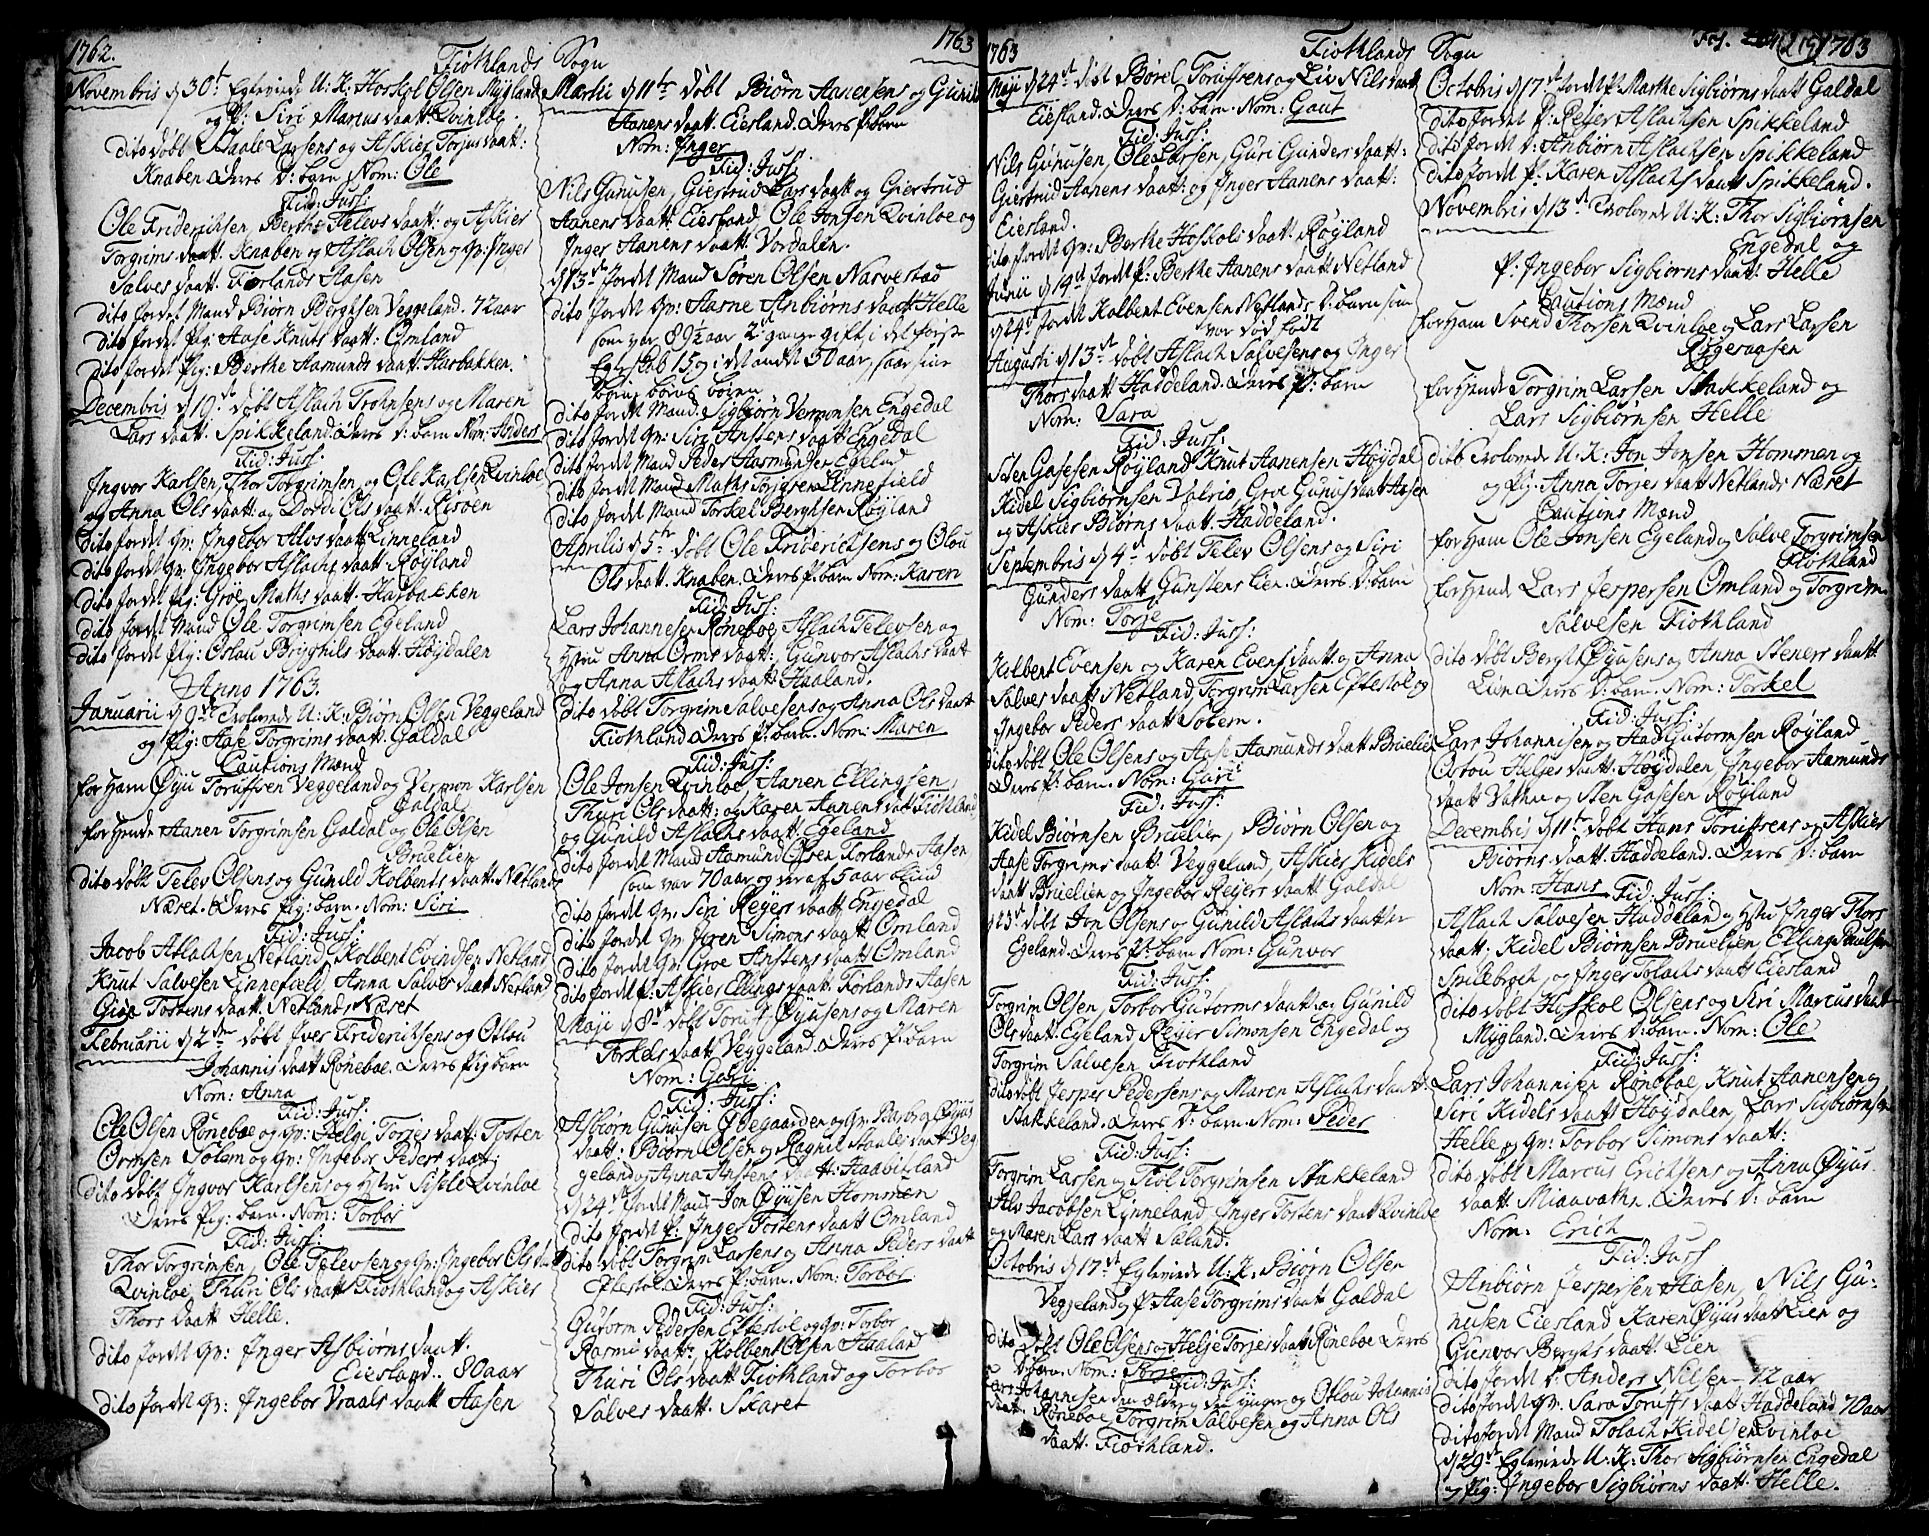 1762.
Fiotlands Sogn
1763
Novembris d 30t Egteviede U: K: Hoskol Olsen Mygland
og P: Siri Marcus daatt: Qvinloe.
dito döbt Staale Larsens og Askier Torjus daatt:
Knaben. Deres D: barn Nom: Ole
Fid: Juss:
Ole Friderichsen, Berthe Televs daatt: og Askier
Torgrims daatt: Knaben og Aslach Olsen og qv: Inger
Salves daatt: Förlands Aasen
dito jordet Mand Biörn Bergtsen Veggeland. 72 aar
dito jordet Pig: Aase Knuts daatt: Omland
dito jordet Pig: Berthe Aamunds daatt: Harbakken.
Decembris d 19de döbt Aslach Trohnsens og Maren
Lars daatt: Spikkeland. Deres D: barn Nom: Anders
Fid: Juss:
Ingvor Karlsen, Thor Torgrimsen, og Ole Karlsen Qvinloe
og Anna Ols daatt: og Dordi Ols daatt: Risöen
dito jordet qv: Ingebor Alvs daatt: Linneland
dito jordet qv: Ingebor Aslachs daatt: Röyland
dito jordet Pig: Groe Maths daatt: Harbakken
dito jordet Mand Ole Torgrimsen Egeland
dito jordet Pig: Oslau Bryghils daatt: Höydalen
Anno 1763.
Januarii d 9de Trolovede U: K: Biörn Olsen Veggeland
og Pig: Aase Torgrims daatt: Galdal
Cautions Mænd
for Ham Öyu Toruffsen Veggeland og Vermon Karlsen
Galdal
for hende Aanen Torgrimsen Galdal og Ole Olsen
Bruelien
dito döbt Telev Olsens og Gunild Kolbents daatt: Netlands
Næret. Deres Pig: barn. Nom: Siri
Fid: Juss:
Jacob Aslachsen Netland, Kolbent Evindsen Netland
Knut Salvesen Linnefield, Anna Salves daatt: Netland
Giöe Tostens daatt: Netlands Næret
Februarii d 2den döbt Iver Frederichsens og Oslou
Johannis daatt Röneboe. Deres Pigebarn
Nom: Anna
Fid: Juss:
Ole Olsen Rönebоe og qv: Helgi Torjes daatt: Tosten
Ormsen Solem og qv: Ingebor Peders daatt:
dito döbt Ingvor Karlsens og Hstru Sisele Qvinloe
Deres Pig: barn. Nom: Torbor
Fid: Juss:
Thor Torgrimsen, Ole Televsen og qv: Ingebor Ols daatt
Qvinloe, Thuri Ols daatt Fiothland og Askier
Thors daatt Helle.
dito jordet qv: Inger Asbiörns daatt:
Eiesland.. 80 aar
dito jordet qv: Ingebor Vraals daatt Aasen
Martii d 11te döbt Biörn Aanensens og Gunild
Aanens daatt: Eiesland. Deres P: barn
Nom: Inger
Fid: Juss:
Nils Gunusen, Giertrud Lars daatt og Giertrud
Aanens daatt: Eiesland, Ole Jonsen Qvinloe og
Inger Aanens daatt: Vordalen.
d 13de jordet Mand Sören Olsen Narvestad
dito jordet qv: Aasne Anbiörns daatt Helle
som var 89½ aar 2de gange gift, i det förste
Egteskab 15, og i det andet 50 aar, saae sine
börns börns börn
dito jordet Mand Sigbiörn Vermonsen Engedal
dito jordet qv: Siri Anstens daatt Engedal
dito jordet Mand Peder Aasmundsen Egeland
dito jordet Mand Maths Torjusen Linnefield
dito jordet Mand Torkel Bergtsen Röyland
Aprilis d 5te döbt Ole Friderichsens og Olou
Ols daatt: Knaben. Deres P: barn Nom: Karen
Fid: Juss:
Lars Johannesen Röneboe, Aslach Televsen og
Hstru Anna Orms daatt: Gunvor Aslachs daatt
og Anna Aslachs daatt: Haaland.
dito döbt Torgrim Salvesens og Anna Ols daatt
Fiothland. Deres P: barn. Nom: Maren
Fid: Juss:
Ole Jonsen Qvinloe, Aanen Ellingsen,
Thuri Ols daatt: og Karen Aanens daatt Fiothland
og Gunild Aslachs daatt: Egeland
dito jordet Mand Aamund Olsen Förlands Aasen,
som var 70 aar og deraf 5 aar blind
dito jordet qv: Siri Reyers daatt Engedal
dito jordet qv: Joren Simons daatt Omland
dito jordet qv: Groe Anstens daatt Omland
dito jordet P: Askier Ellings daatt: Förlands Aasen
Maji d 8de döbt Toruf Öyusens og Maren
Torkels daatt, Veggeland. Deres P: barn
Nom:
Fid: Juss:
Asbiörn Gunusen Ödegaarden og qv: Barbro Öyus
daatt: Biörn Olsen og Ragnil Staales daatt: Veg
geland og Anna Anstens daatt: Haabitsland
d 24de jordet Mand Jon Öyusen Hommen
dito jordet P: Inger Tostens daatt Omland
dito döbt Torgrim Larsens og Anna Peders daatt
Eftestöl. Deres P: barn. Nom: Torbor
Fid: Juss:
Gutorm Pedersen Eftestöl og qv: Torbor
Rasmi daatt, Kolbent Olsen Haaland
Thuri Ols daatt Fiothland og Torbor
Salves daatt: Skaret
1763
Fiothlands Sogn
Fol. 1763
Maji d 24de döbt Börel Toruffsens og Liv Nils daatt
Eiesland. Deres D: barn. Nom: Gaut
Fid: Juss:
Nils Gunusen, Ole Larsen, Guri Gunders daatt:
Giertrud Aanens daatt: og Inger Aanens daatt:
Eiesland.
dito jordet qv: Berthe Hoskols daatt. Röyland
Junii d 19de jordet P: Berthe Aanens daatt Netland
d 24de jordet Kolbent Evensen Netlands D: barn som
var död födt
Augusti d 13de döbt Aslach Salvesens og Inger
Thors daatt Haddeland. Deres P: barn
Nom: Sara
Fid: Juss:
Sten Gasesen Röyland Knut Aanensen Höydal
Kidel Sigbiörnsen Valrio, Groe Gunus daatt Aasen
og Askier Biörns daatt: Haddeland.
Septembris d 4de döbt Telev Olsens og Siri
Gunders daatt Gunstens Lien. Deres D: barn
Nom: Torje
Fid: Juss:
Kolbent Evensen og Karen Evens daatt: og Anna
Salves daatt: Netland, Torgrim Larsen Eftestöl og
Ingebor Peders daatt: Solem.
dito döbt Ole Olsens og Aase Aamunds daatt Bruelien
Deres P: barn. Nom: Guri
Fid: Juss:
Kidel Biörnsen Bruelien, Biörn Olsen og
Aase Torgrims daatt: Veggeland, Askier Kidels
daatt Bruelien og Ingebor Reyers daatt Galdal
d 25de döbt Jon Olsens og Gunild Aslachs daatter
Egeland. Deres P: barn Nom: Gunvor
Fid: Juss:
Torgrim Olsen, Torbor Gutorms daatt: og Gunild
Ols daatt: Egeland, Reyer Simonsen Engedal og
Torgrim Salvesen Fiothland
dito döbt Jesper Pedersens og Maren Aslachs daatt:
Stakkeland. Deres D: barn. Nom: Peder
Fid: Juss:
Torgrim Larsen og Tiöl Torgrimsen Stakkeland
Alv Jacobsen Lynneland Inger Tostens daatt Qvinloe
og Maren Lars daatt: Saland.
Octobris d 17de Egteviede U: K: Biörn Olsen
Veggeland og P: Aase Torgrims daatt Galdal
dito döbt Ole Olsens og Helje Torjes daatt: Röneboe Deres
D: barn. Nom: Torje
Fid: Juss:
Lars Johannisen den ælder og den ynger og Oslou Johannis
daatt: Röneboe, Torgrim Salvesen og Anna Ols
daatt: Fiothland.
Octobris d 17de jordet P: Marthe Sigbiörns daatt Galdal
dito jordet P: Reyer Aslachsen Spikkeland
dito jordet D: Anbiörn Aslachsen Spikkeland
dito jordet P: Karen Aslachs daatt Spikkeland.
Novembris d 13de Trolovede U: K: Thor Sigbiörnsen
Engedal og
P: Ingebor Sigbiörns daatt: Helle
Cautions Mænd
for Ham Svend Thorsen Qvinloe og Lars Larsen
Rögeraasen
for Hende Torgrim Larsen Stakkeland og
Lars Sigbiörnsen Helle
dito Trolovede U: K: Jon Jonsen Hommen og
og Pig: Anna Torjes daatt Netlands Næret
Cautions Mænd
for Ham Ole Jonsen Egeland og Salve Torgrimsen
Fiothland
for Hende Lars Jespersen Omland og Torgrim
Salvesen Fiothland
dito döbt Bergt Öyusens og Anna Steners daatt
Lien. Deres D: barn. Nom: Torkel
Fid: Juss:
Lars Johannisen og Gutormsen Röyland
Ostou Heljes daatt: Höydalen, Ingebor Aamunds
daatt Vathne og Sten Gasesen Röyland
Decembris d 11te döbt Hans Toruffsens og Askier
Biörns daatt: Haddeland. Deres D: barn
Nom: Hans
Fid: Juss:
Aslach Salvesen Haddeland og Hstru Inger Thors
daatt, Kidel Biörnsen Bruelien, Elling Poulsen
Spilebroch, og Inger Tolachs daatt Eiesland
dito döbt Hoskol Olsens og Siri Marcus daatt
Mygland. Deres D: barn. Nom: Ole
Fid: Juss:
Lars Johannisen Röneboe, Knut Aanensen og
Siri Kidels daatt Höydalen, Lars Sigbiörnsen
Helle og qv: Torbor Simons daatt:
dito döbt Marcus Erichsens og Anna Öyus
daatt: Miaavathn. Deres D: barn
Nom: Erich
Fid: Juss
Anbiörn Jespersen Aasen, Nils Gu-
nusen Eiesland Karen Öyus daatt Lien og
Gunvor Bergts daatt: Lien
dito jordet D: Anders Nilsen 72 aar
dito jordet qv: Sara Toruffs daatt Haddeland 70 aar
dito jordet Mand Tolach Kidelsen Qvinloe
d 29de Egteviede U: K: Thor Sigbiörnsen Engedal
og Pig: Ingebor Sigbiörns daatt: Helle.